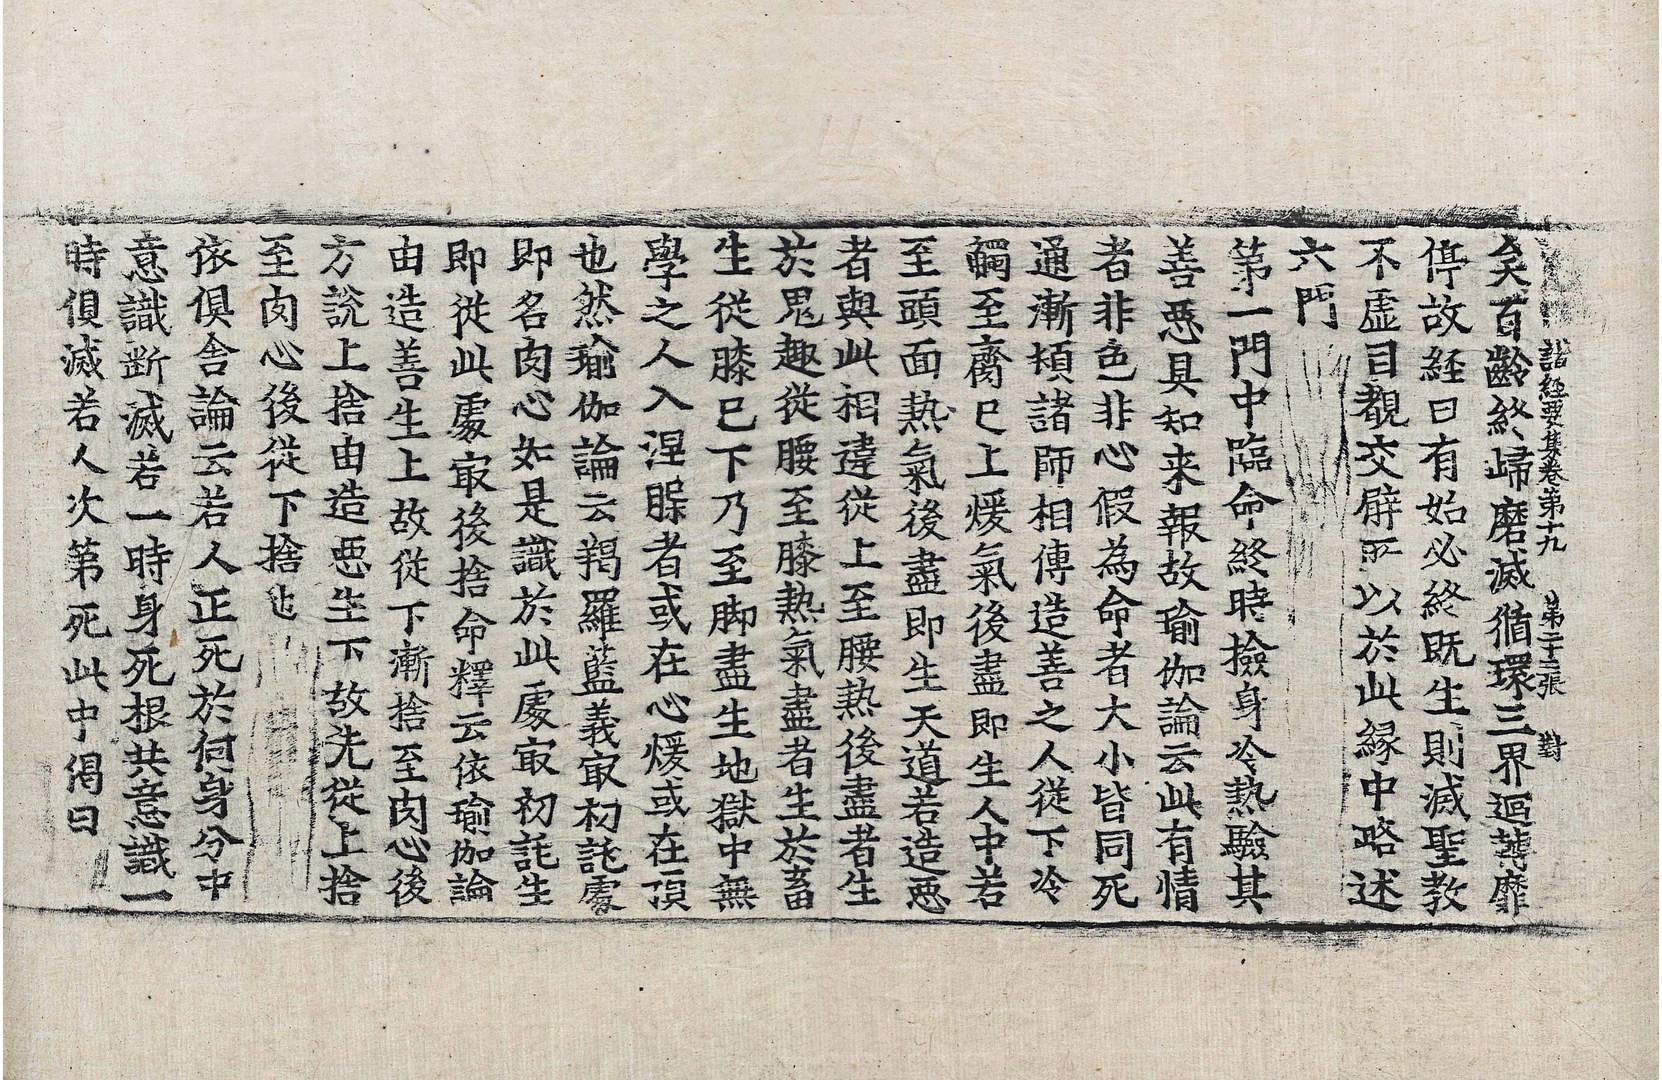 諸經要集卷第十九　第二十三張　對
矣百齡終歸磨滅循環三界迴薄靡
停故経曰有始必終既生則滅聖教
不虛目覩交臂所以於此緣中略述
六門
第一門中臨命終時撿身冷熱驗其
善惡具知来報故瑜伽論云此有情
者非色非心假為命者大小皆同死
通漸頓諸師相傳造善之人從下冷
觸至齎已上煖氣後盡即生人中若
至頭面熱氣後盡即生天道若造惡
者與此相違從上至腰熱後盡者生
於鬼趣從腰至膝熱氣盡者生於畜
生從膝已下乃至脚盡生地獄中無
學之人入涅槃者或在心煖或在頂
也然瑜伽論云羯羅藍義㝡初託處
即名肉心如是識於此處㝡初託生
即從此處㝡後捨命釋云依瑜伽論
由造善生上故從下漸捨至肉心後
方說上捨由造惡生下故先從上捨
至肉心後從下捨也
依俱舍論云若人正死於何身分中
意識断滅若一時身死根共意識一
時俱滅若人次第死此中偈曰